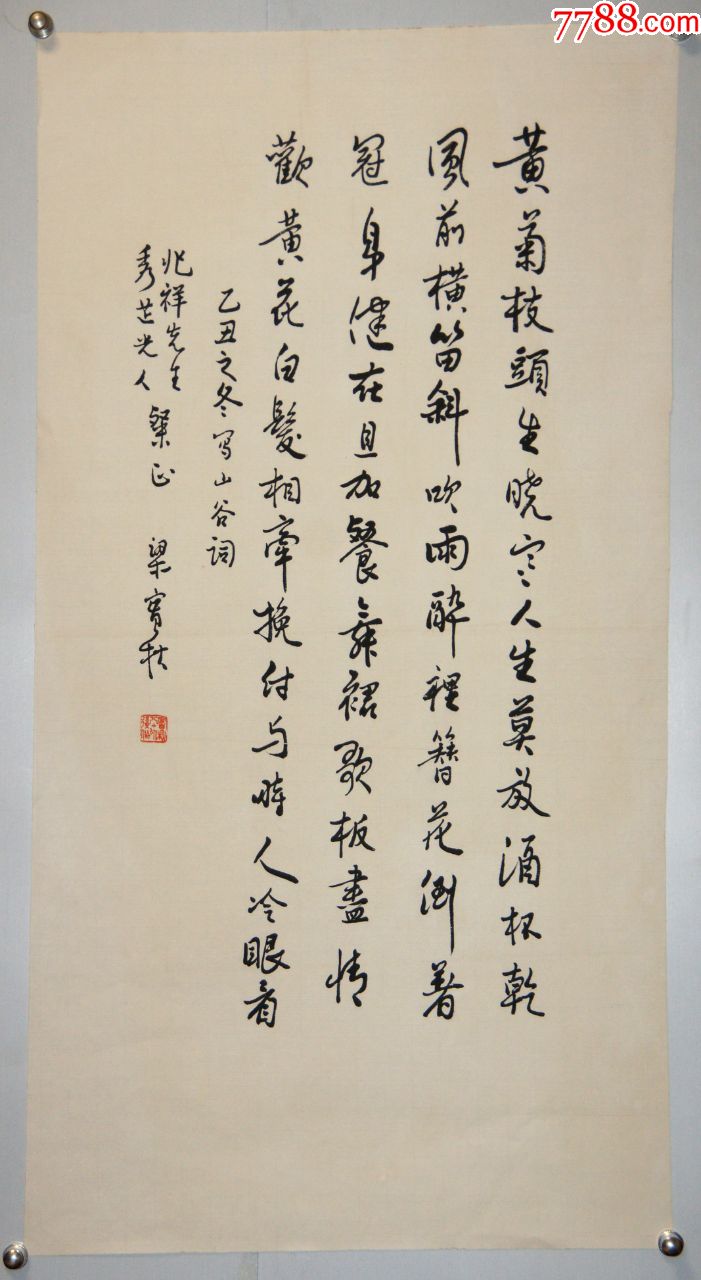 7788.com
黄菊枝頭生曉寒人生莫放酒杯乾
風前橫笛斜吹雨醉裡簪花倒著
冠身健在且加餐舞裙歌板盡情
歡黄花白髮相牽挽付与時人冷眼看
乙丑之冬写山谷词
兆祥先生
秀芷光人
粲正 梁實秋